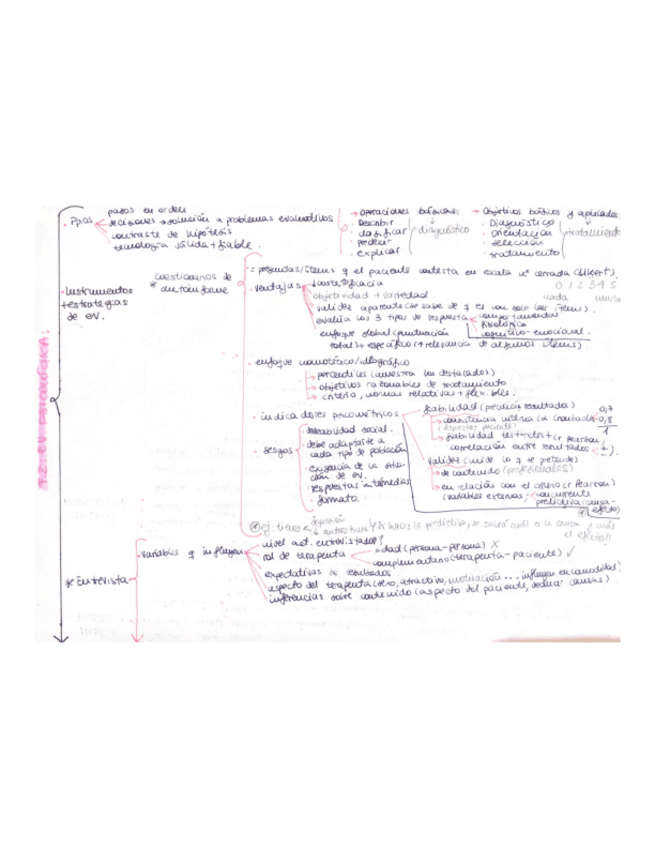 T.2: EV. PSICOLÓGICA:
· Ppios
pasos en orden
decisiones → solución a problemas evaluativos
contraste de hipótesis
tecnología válida + fiable.
→ Operaciones básicas:
· Describir
· clasificar
· predecir
· explicar
diagnóstico
→ Objetivos básicos y aplicados
· Diagnóstico
· Orientación
· selección
· tratamiento
tratamiento
· Instrumentos
+ estrategias
de ev.
* Cuestionarios de
autoinforme
= preguntas/ítems q el paciente contesta en escala cerrada (likert).
0 1 2 3 4 5
nada
· ventajas
objetividad + variedad
validez aparente
evalúa los 3 tipos de respuesta
fisiológico
cognitivo-emocional.
enfoque global (puntuación
total) + específico (+ relevancia de algunos ítems)
· enfoque nomotético/idiográfico
→ percentiles (muestra los destacados)
→ objetivos razonables de tratamiento
→ criterio, normas relativas + flexibles.
· indicadores psicométricos
fiabilidad (precisión resultados)
→ consistencia interna (α Cronbach)
0,7
0,8
1
→ fiabilidad test-retest (r Pearson,
correlación entre resultados
validez (mide lo q se pretende)
→ de contenido (profesionales)
→ en relación con el criterio (r Pearson)
(variables externas: concurrente
predictiva (causa-
efecto)
· sesgos
· deseabilidad social.
· debe adaptarse a
cada tipo de población
· exigencia de la situa-
ción de ev.
· respuestas intermedias
· formato.
* Entrevista
· variables q influyen
nivel act. entrevistador?
rol de terapeuta
edad (persona-persona) X
complementario (terapeuta-paciente) ✓
expectativas de resultados
aspecto del terapeuta (serio, atractivo, motivación... influyen en comodidad!
inferencias sobre contenido (aspecto del paciente, deducir causas)